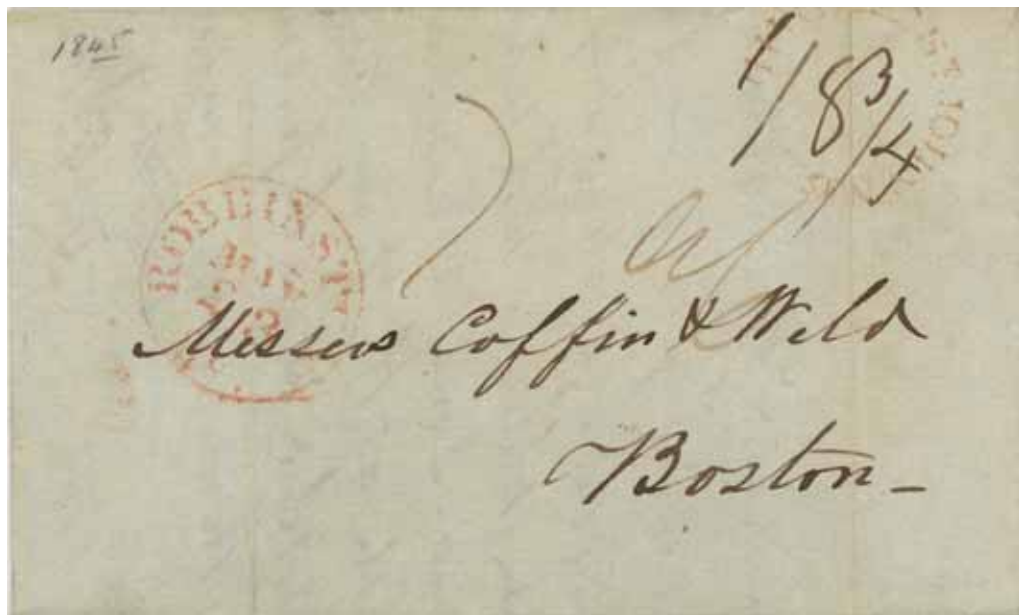 1845
18 3/4
ROBBINST
Messrs Coffin & Weld
Boston -